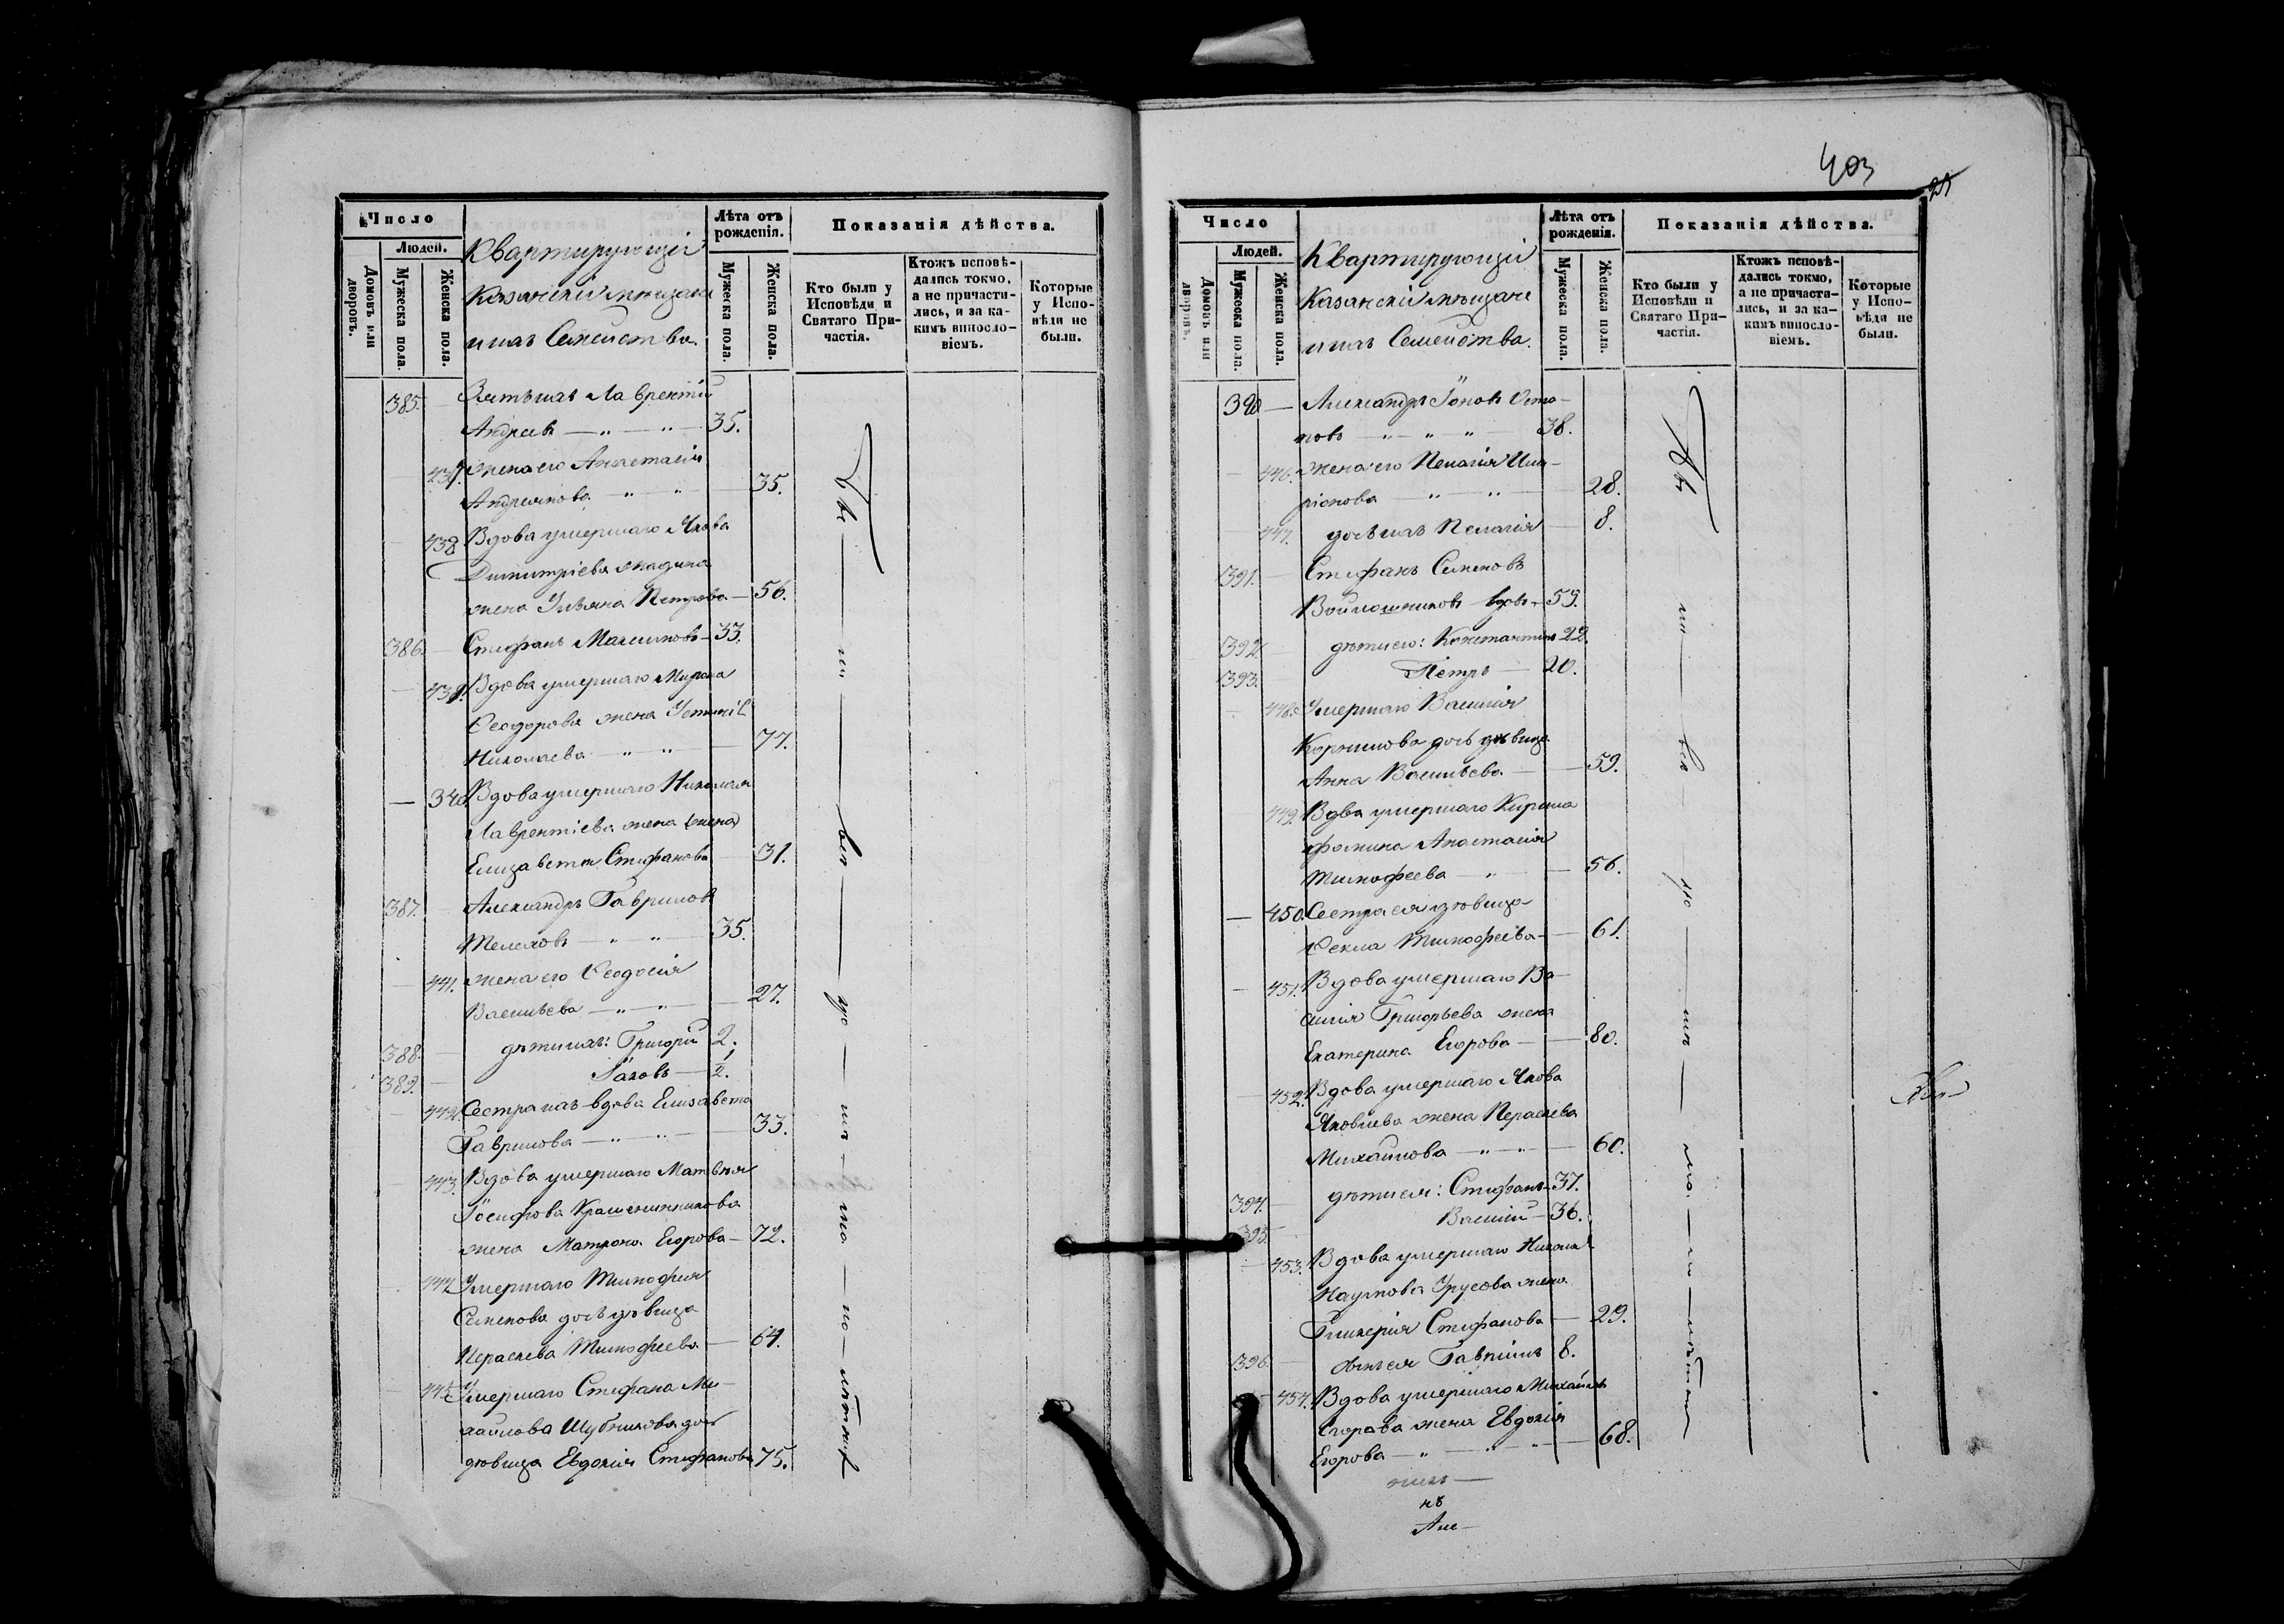 403
Число
Людей.
Домовъ или дворовъ.
Мужеска пола.
Женска пола.
Квартирующіи
Казанскіи мѣщане
и ихъ Семейства.
Лѣта отъ рожденія.
Мужеска пола.
Женска пола.
Показанія дѣйства.
Кто были у Исповѣди и Святаго Причастія.
Ктожъ исповѣдались токмо, а не причастились, и за какимъ винословіемъ.
Которые у Исповѣди не были.
385. Зять ихъ Лаврентій
Андреевъ 35.
437. жена его Анастасія
Андреянова 35.
438 Вдова умершаго Якова
Димитріева
жена Ульяна Петрова 56.
386. Стефанъ Максимовъ 33.
439. Вдова умершаго Мирона
Ѳеодорова жена Устинія
Николаева 77.
340 Вдова умершаго Николая
Лаврентіева жена
Елизавета Стефанова 31.
387. Александръ Гавриловъ
35.
441. жена его Ѳеодосія
Васильева 27.
388. дѣти ихъ: Григорій 2.
389. Іаковъ 2.
442. Сестра ихъ вдова Елизавета
Гаврилова 33.
443. Вдова умершаго Матвѣя
Іосифова Крашенинникова
жена Матрона Егорова 72.
444. Умершаго Тимофея
Семенова дочь дѣвица
Параскева Тимофеева 64.
445. Умершаго Стефана Ми-
хайлова Шубникова дочь
дѣвица Евдокія Стефанова 75.
Число
Людей.
Домовъ или дворовъ.
Мужеска пола.
Женска пола.
Квартирующіи
Казанскіи мѣщане
и ихъ Семейства.
Лѣта отъ рожденія.
Мужеска пола.
Женска пола.
Показанія дѣйства.
Кто были у Исповѣди и Святаго Причастія.
Ктожъ исповѣдались токмо, а не причастились, и за какимъ винословіемъ.
Которые у Исповѣди не были.
390 Александръ Іоновъ
38.
446. жена его Пелагія Ила-
ріонова 28.
447. дочь ихъ Пелагія 8.
391. Стефанъ Семеновъ
Войлошниковъ вдовъ 59.
392. дѣти его: Константинъ 22.
393. Петръ 20.
448. Умершаго Василія
Корнилова дочь дѣвица
Анна Васильева 59.
449. Вдва умершаго Кирила
Фомина Анастасія
Тимофеева 56.
450. Сестра ея дѣвица
Ѳекла Тимофеева 61.
451. Вдова умершаго Ва-
силія Григорьева жена
Екатерина Егорова 80.
452. Вдова умершаго Якова
Яковлева жена Параскева
Михайлова 60.
394. дѣти ея: Стефанъ 37.
395. Василій 36.
453. Вдова умершаго Николая
Наумова Урусова жена
Гликерія Стефанова 29.
396. сынъ ея Гавріилъ 8.
454. Вдова умершаго Михаила
Егорова жена Евдокія
Егорова 68.